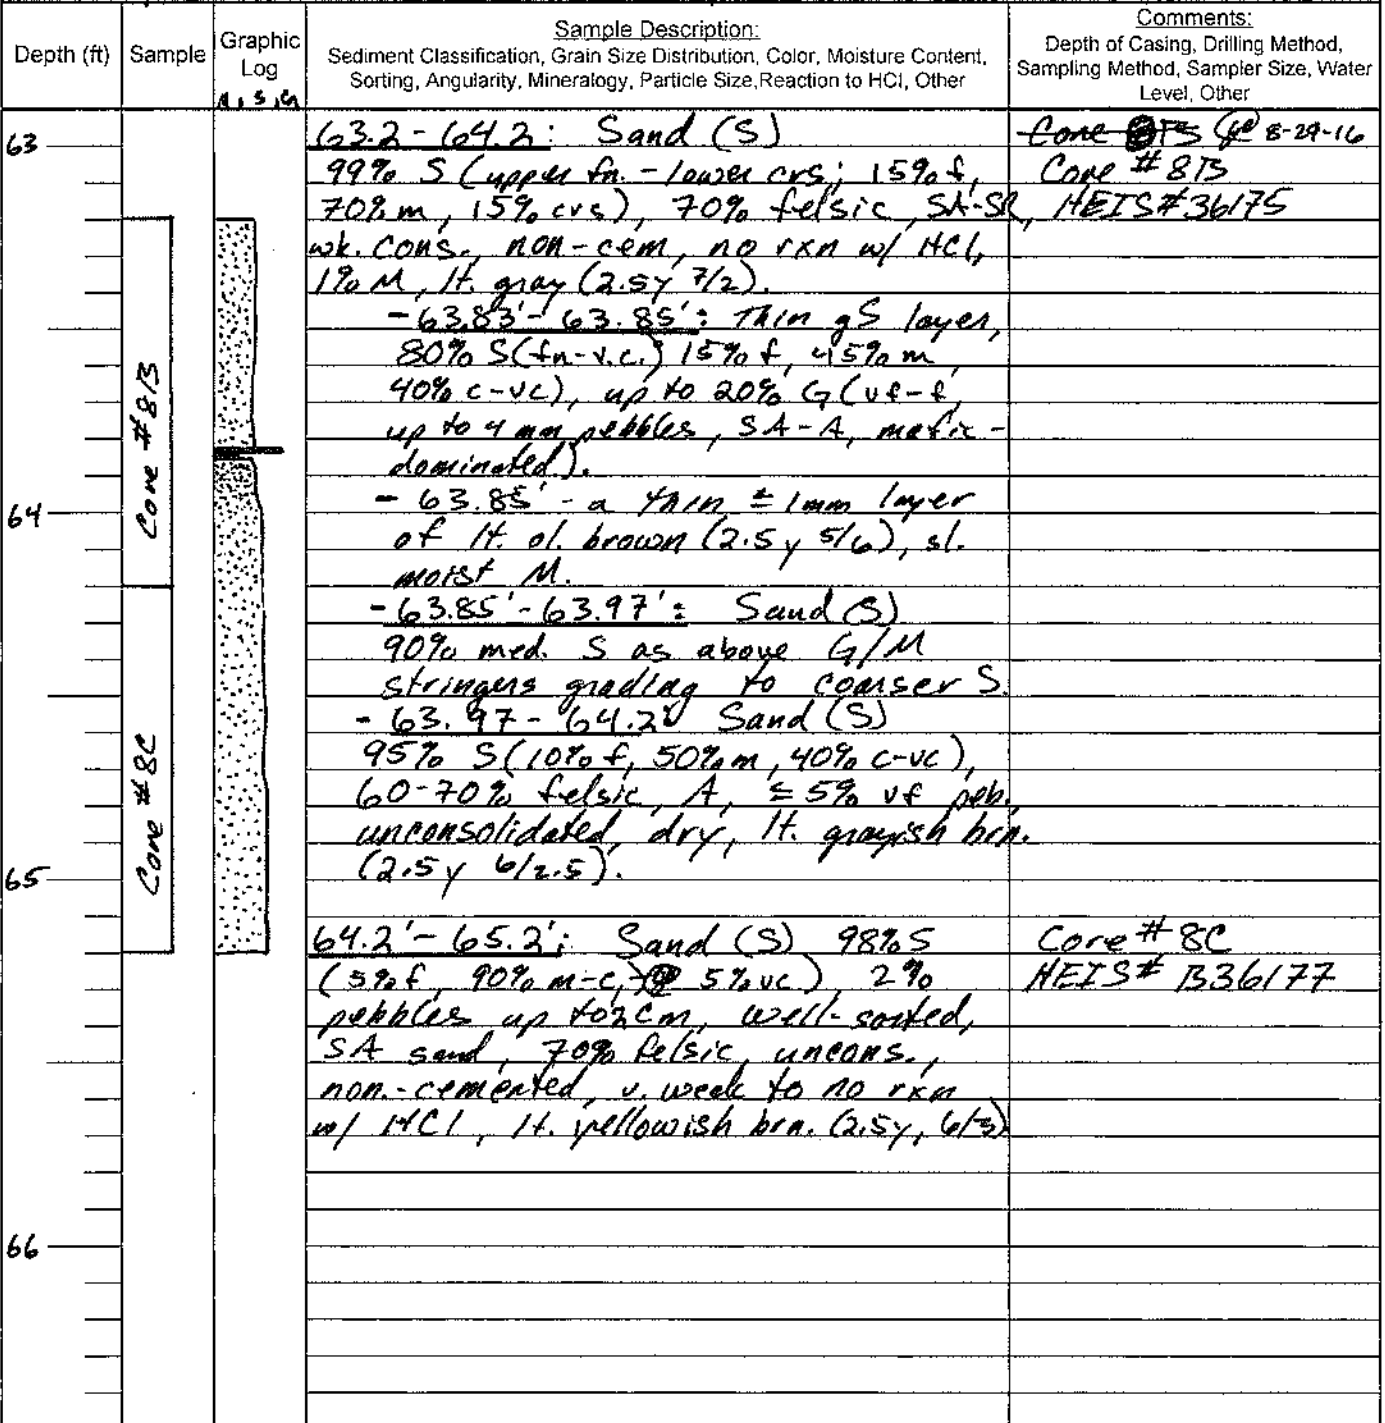 Depth (ft)
Sample
Graphic
Log
M, S, G
Sample Description:
Sediment Classification, Grain Size Distribution, Color, Moisture Content,
Sorting, Angularity, Mineralogy, Particle Size,Reaction to HCl, Other
Comments:
Depth of Casing, Drilling Method,
Sampling Method, Sampler Size, Water
Level, Other
63
64
65
66
Core #8B
Core #8C
63.2-64.2: Sand (S)
99% S (upper fn. - lower crs; 15% f,
70% m, 15% crs), 70% felsic, SA-SR,
wk. cons., non-cem, no rxn w/ HCl,
1% M, lt. gray (2.5y 7/2).
-63.83'-63.85': Thin gS layer,
80% S(fn-v.c.) 15% f, 45% m
40% c-vc), up to 20% G (vf-f,
up to 4 mm pebbles, SA-A, mafic-
dominated).
- 63.85' - a thin ± 1mm layer
of lt. ol. brown (2.5y 5/6), sl.
moist M.
-63.85'-63.97': Sand (S)
90% med. S as above G/M
stringers grading to coarser S.
- 63.97-64.2' Sand (S)
95% S(10% f, 50% m, 40% c-vc),
60-70% felsic, A, ≤5% vf peb.
unconsolidated, dry, lt. grayish brn.
(2.5y 6/2.5).
64.2'-65.2': Sand (S) 98% S
(5% f, 90% m-c, 5% vc), 2%
pebbles up to 2cm, well-sorted,
SA sand, 70% felsic, uncons.,
non.-cemented, v. weak to no rxn
w/ HCl, lt. yellowish brn. (2.5y, 6/3)
Core 8-29-16
Core #8B
HEIS#36175
Core #8C
HEIS# B36177